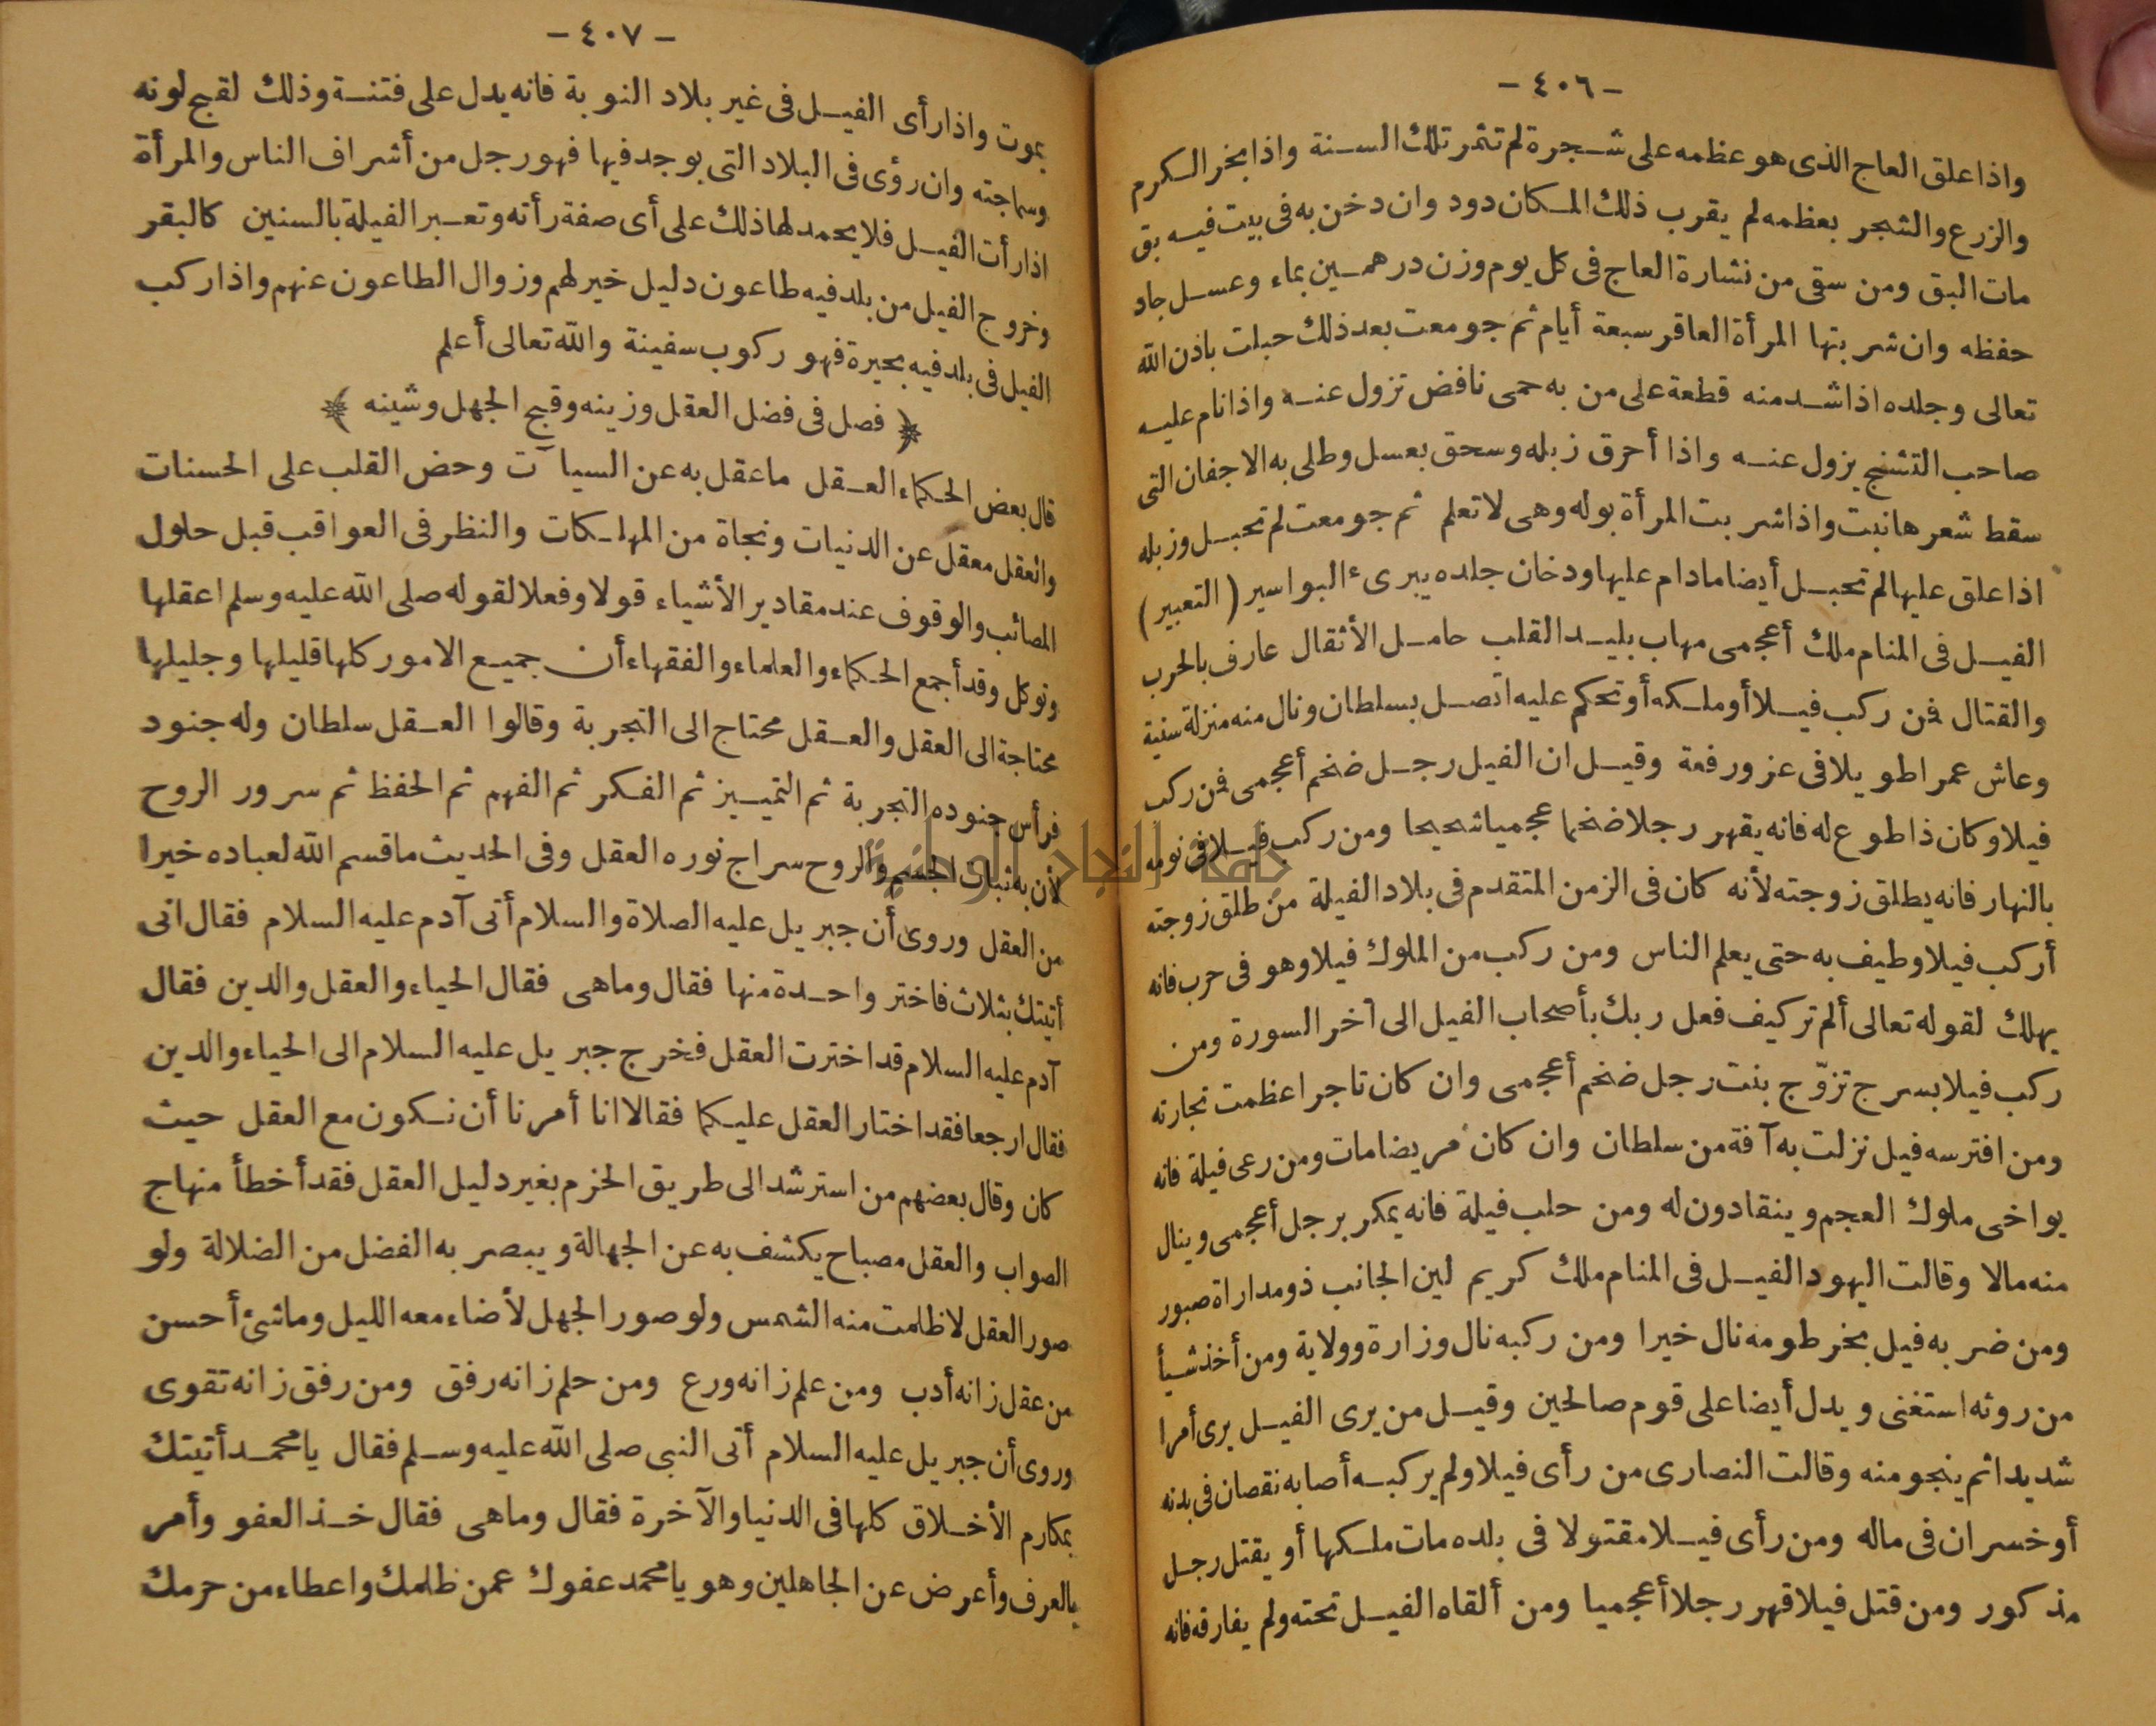 - ٤٠٦ -
واذا علق العاج الذى هو عظمه على شجرة لم تثمر تلك السنة واذا بخر الكرم
والزرع والشجر بعظمه لم يقرب ذلك المكان دود وان دخن به فى بيت فيه بق
مات البق ومن سقى من نشارة العاج فى كل يوم وزن درهمين بماء وعسل جاد
حفظه وان شربتها المرأة العاقر سبعة أيام ثم جومعت بعد ذلك حبلت باذن الله
تعالى وجلده اذا شد منه قطعة على من به حمى نافض تزول عنه واذا نام عليه
صاحب التشنج يزول عنه واذا أحرق زبله وسحق بعسل وطلى به الاجفان التى
سقط شعرها نبت واذا شربت المرأة بوله وهى لا تعلم ثم جومعت لم تحبل وزبله
اذا علق عليها لم تحبل أيضا مادام عليها ودخان جلده يبرىء البواسير (التعبير)
الفيل فى المنام ملك أعجمى مهاب بليد القلب حامل الأثقال عارف بالحرب
والقتال فمن ركب فيلا أو ملكه أو تحكم عليه اتصل بسلطان ونال منه منزلة سنية
وعاش عمرا طويلا فى عز ورفعة وقيل ان الفيل رجل ضخم أعجمى فمن ركب
فيلا وكان ذا طوع له فانه يقهر رجلا ضخما عجميا شحيحا ومن ركب فيلا فى نومه
بالنهار فانه يطلق زوجته لأنه كان فى الزمن المتقدم فى بلاد الفيلة من طلق زوجته
أركب فيلا وطيف به حتى يعلم الناس ومن ركب من الملوك فيلا وهو فى حرب فانه
يهلك لقوله تعالى ألم تر كيف فعل ربك بأصحاب الفيل الى آخر السورة ومن
ركب فيلا بسرج تزوّج بنت رجل ضخم أعجمى وان كان تاجرا عظمت تجارته
ومن افترسه فيل نزلت به آفة من سلطان وان كان مريضا مات ومن رعى فيلة فانه
يواخى ملوك العجم وينقادون له ومن حلب فيلة فانه يمكر برجل أعجمى وينال
منه مالا وقالت اليهود الفيل فى المنام ملك كريم لين الجانب ذو مداراة صبور
ومن ضربه فيل بخرطومه نال خيرا ومن ركبه نال وزارة وولاية ومن أخذ شيأ
من روثه استغنى ويدل أيضا على قوم صالحين وقيل من يرى الفيل يرى أمرا
شديدا ثم ينجو منه وقالت النصارى من رأى فيلا ولم يركبه أصابه نقصان فى بدنه
أو خسران فى ماله ومن رأى فيلا مقتولا فى بلده مات ملكها أو يقتل رجل
مذكور ومن قتل فيلا قهر رجلا أعجميا ومن ألقاه الفيل تحته ولم يفارقه فانه
- ٤٠٧ -
يموت واذا رأى الفيل فى غير بلاد النوبة فانه يدل على فتنة وذلك لقبح لونه
وسماجته وان رؤى فى البلاد التى يوجد فيها فهو رجل من أشراف الناس والمرأة
اذا رأت الفيل فلا يحمد لها ذلك على أى صفة رأته وتعبر الفيلة بالسنين كالبقر
وخروج الفيل من بلد فيه طاعون دليل خير لهم وزوال الطاعون عنهم واذا ركب
الفيل فى بلد فيه بحيرة فهو ركوب سفينة والله تعالى أعلم
﴿ فصل فى فضل العقل وزينه وقبح الجهل وشينه ﴾
قال بعض الحكماء العقل ما عقل به عن السيآت وحض القلب على الحسنات
والعقل معقل عن الدنيات ونجاة من المهلكات والنظر فى العواقب قبل حلول
المصائب والوقوف عند مقادير الأشياء قولا وفعلا لقوله صلى الله عليه وسلم اعقلها
وتوكل وقد أجمع الحكماء والعلماء والفقهاء أن جميع الامور كلها قليلها وجليلها
محتاجة الى العقل والعقل محتاج الى التجربة وقالوا العقل سلطان وله جنود
فرأس جنوده التجربة ثم التمييز ثم الفكر ثم الفهم ثم الحفظ ثم سرور الروح
لأن به ثبات الجسم والروح سراج نوره العقل وفى الحديث ما قسم الله لعباده خيرا
من العقل وروى أن جبريل عليه الصلاة والسلام أتى آدم عليه السلام فقال انى
أتيتك بثلاث فاختر واحدة منها فقال وما هى فقال الحياء والعقل والدين فقال
آدم عليه السلام قد اخترت العقل فخرج جبريل عليه السلام الى الحياء والدين
فقال ارجعا فقد اختار العقل عليكما فقالا انا أمرنا أن نكون مع العقل حيث
كان وقال بعضهم من استرشد الى طريق الحزم بغير دليل العقل فقد أخطأ منهاج
الصواب والعقل مصباح يكشف به عن الجهالة ويبصر به الفضل من الضلالة ولو
صور العقل لاظلمت منه الشمس ولو صور الجهل لأضاء معه الليل وما شئ أحسن
من عقل زانه أدب ومن علم زانه ورع ومن حلم زانه رفق ومن رفق زانه تقوى
وروى أن جبريل عليه السلام أتى النبى صلى الله عليه وسلم فقال يا محمد أتيتك
بمكارم الأخلاق كلها فى الدنيا والآخرة فقال وما هى فقال خذ العفو وأمر
بالعرف وأعرض عن الجاهلين وهو يا محمد عفوك عمن ظلمك واعطاء من حرمك
جامعة النجاح الوطنية